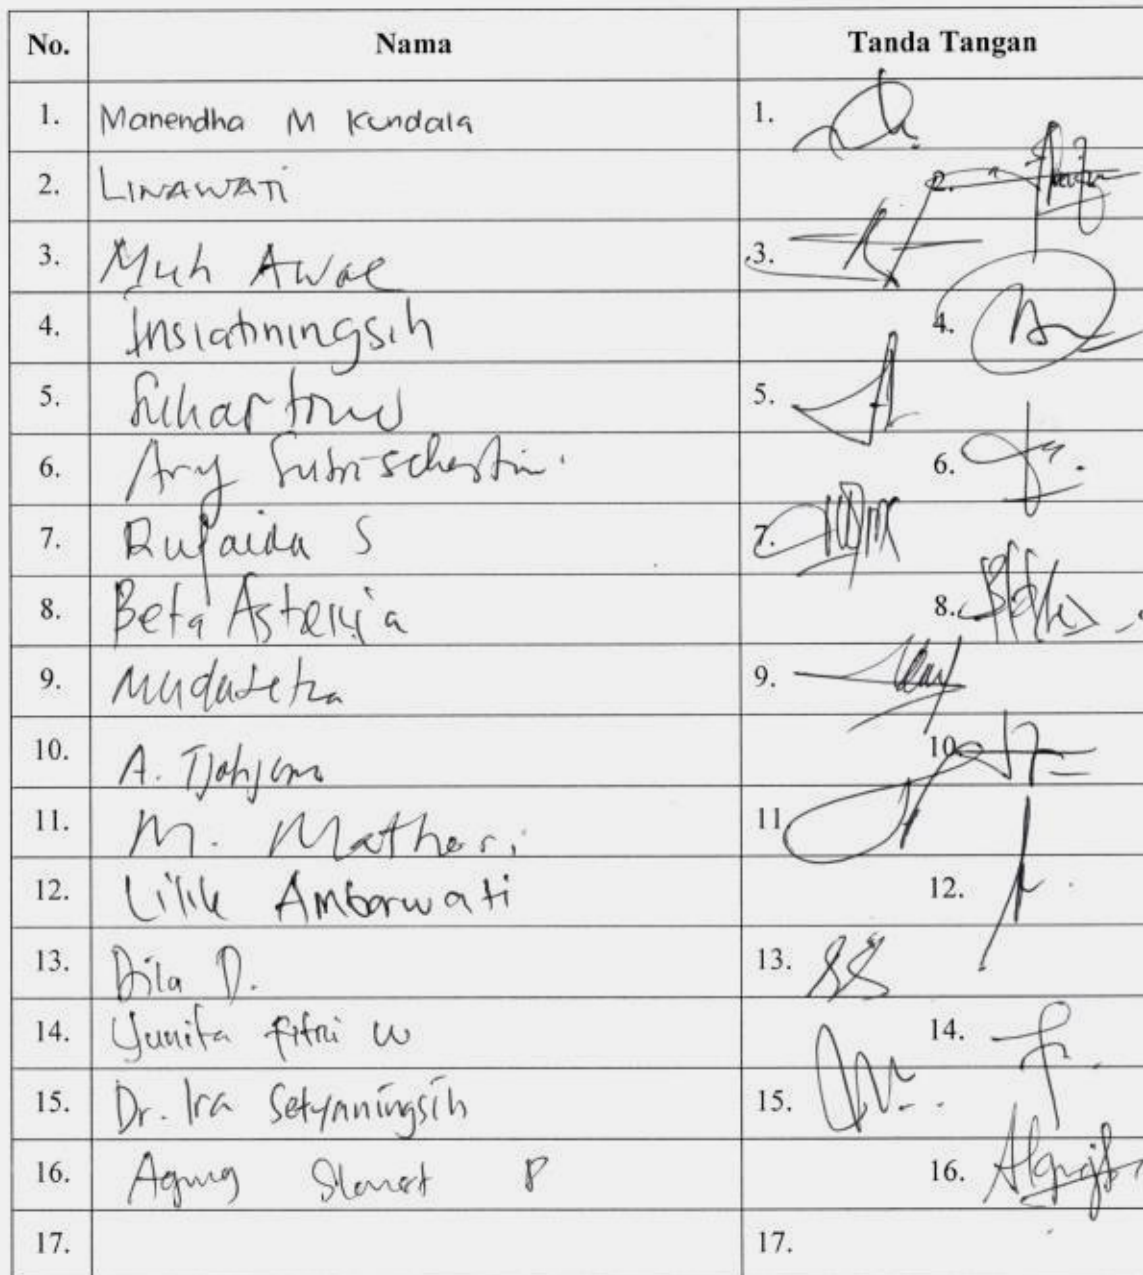 No. Nama Tanda Tangan
1. Manendha M Kundala 1.
2. LINAWATI 2.
3. Muh Awal 3.
4. Insiatiningsih 4.
5. Suhartono 5.
6. Ary 6.
7. Rufaida S 7.
8. Beta Asteria 8.
9. 9.
10. A. Tjahjono 10.
11. M. Mathori 11
12. Lilik Ambarwati 12.
13. Dila D. 13.
14. Yunita Fitri W 14.
15. Dr. Ira Setyaningsih 15.
16. Agung Slamet P 16.
17. 17.